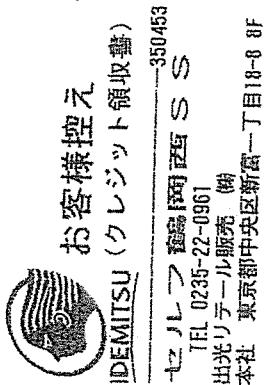 お客様控え
IDEMITSU (クレジット領収書)
350453
セルフ鶴岡西SS
TEL 0235-22-0961
出光リテール販売 (株)
本社 東京都中央区新富一丁目18-8 8F